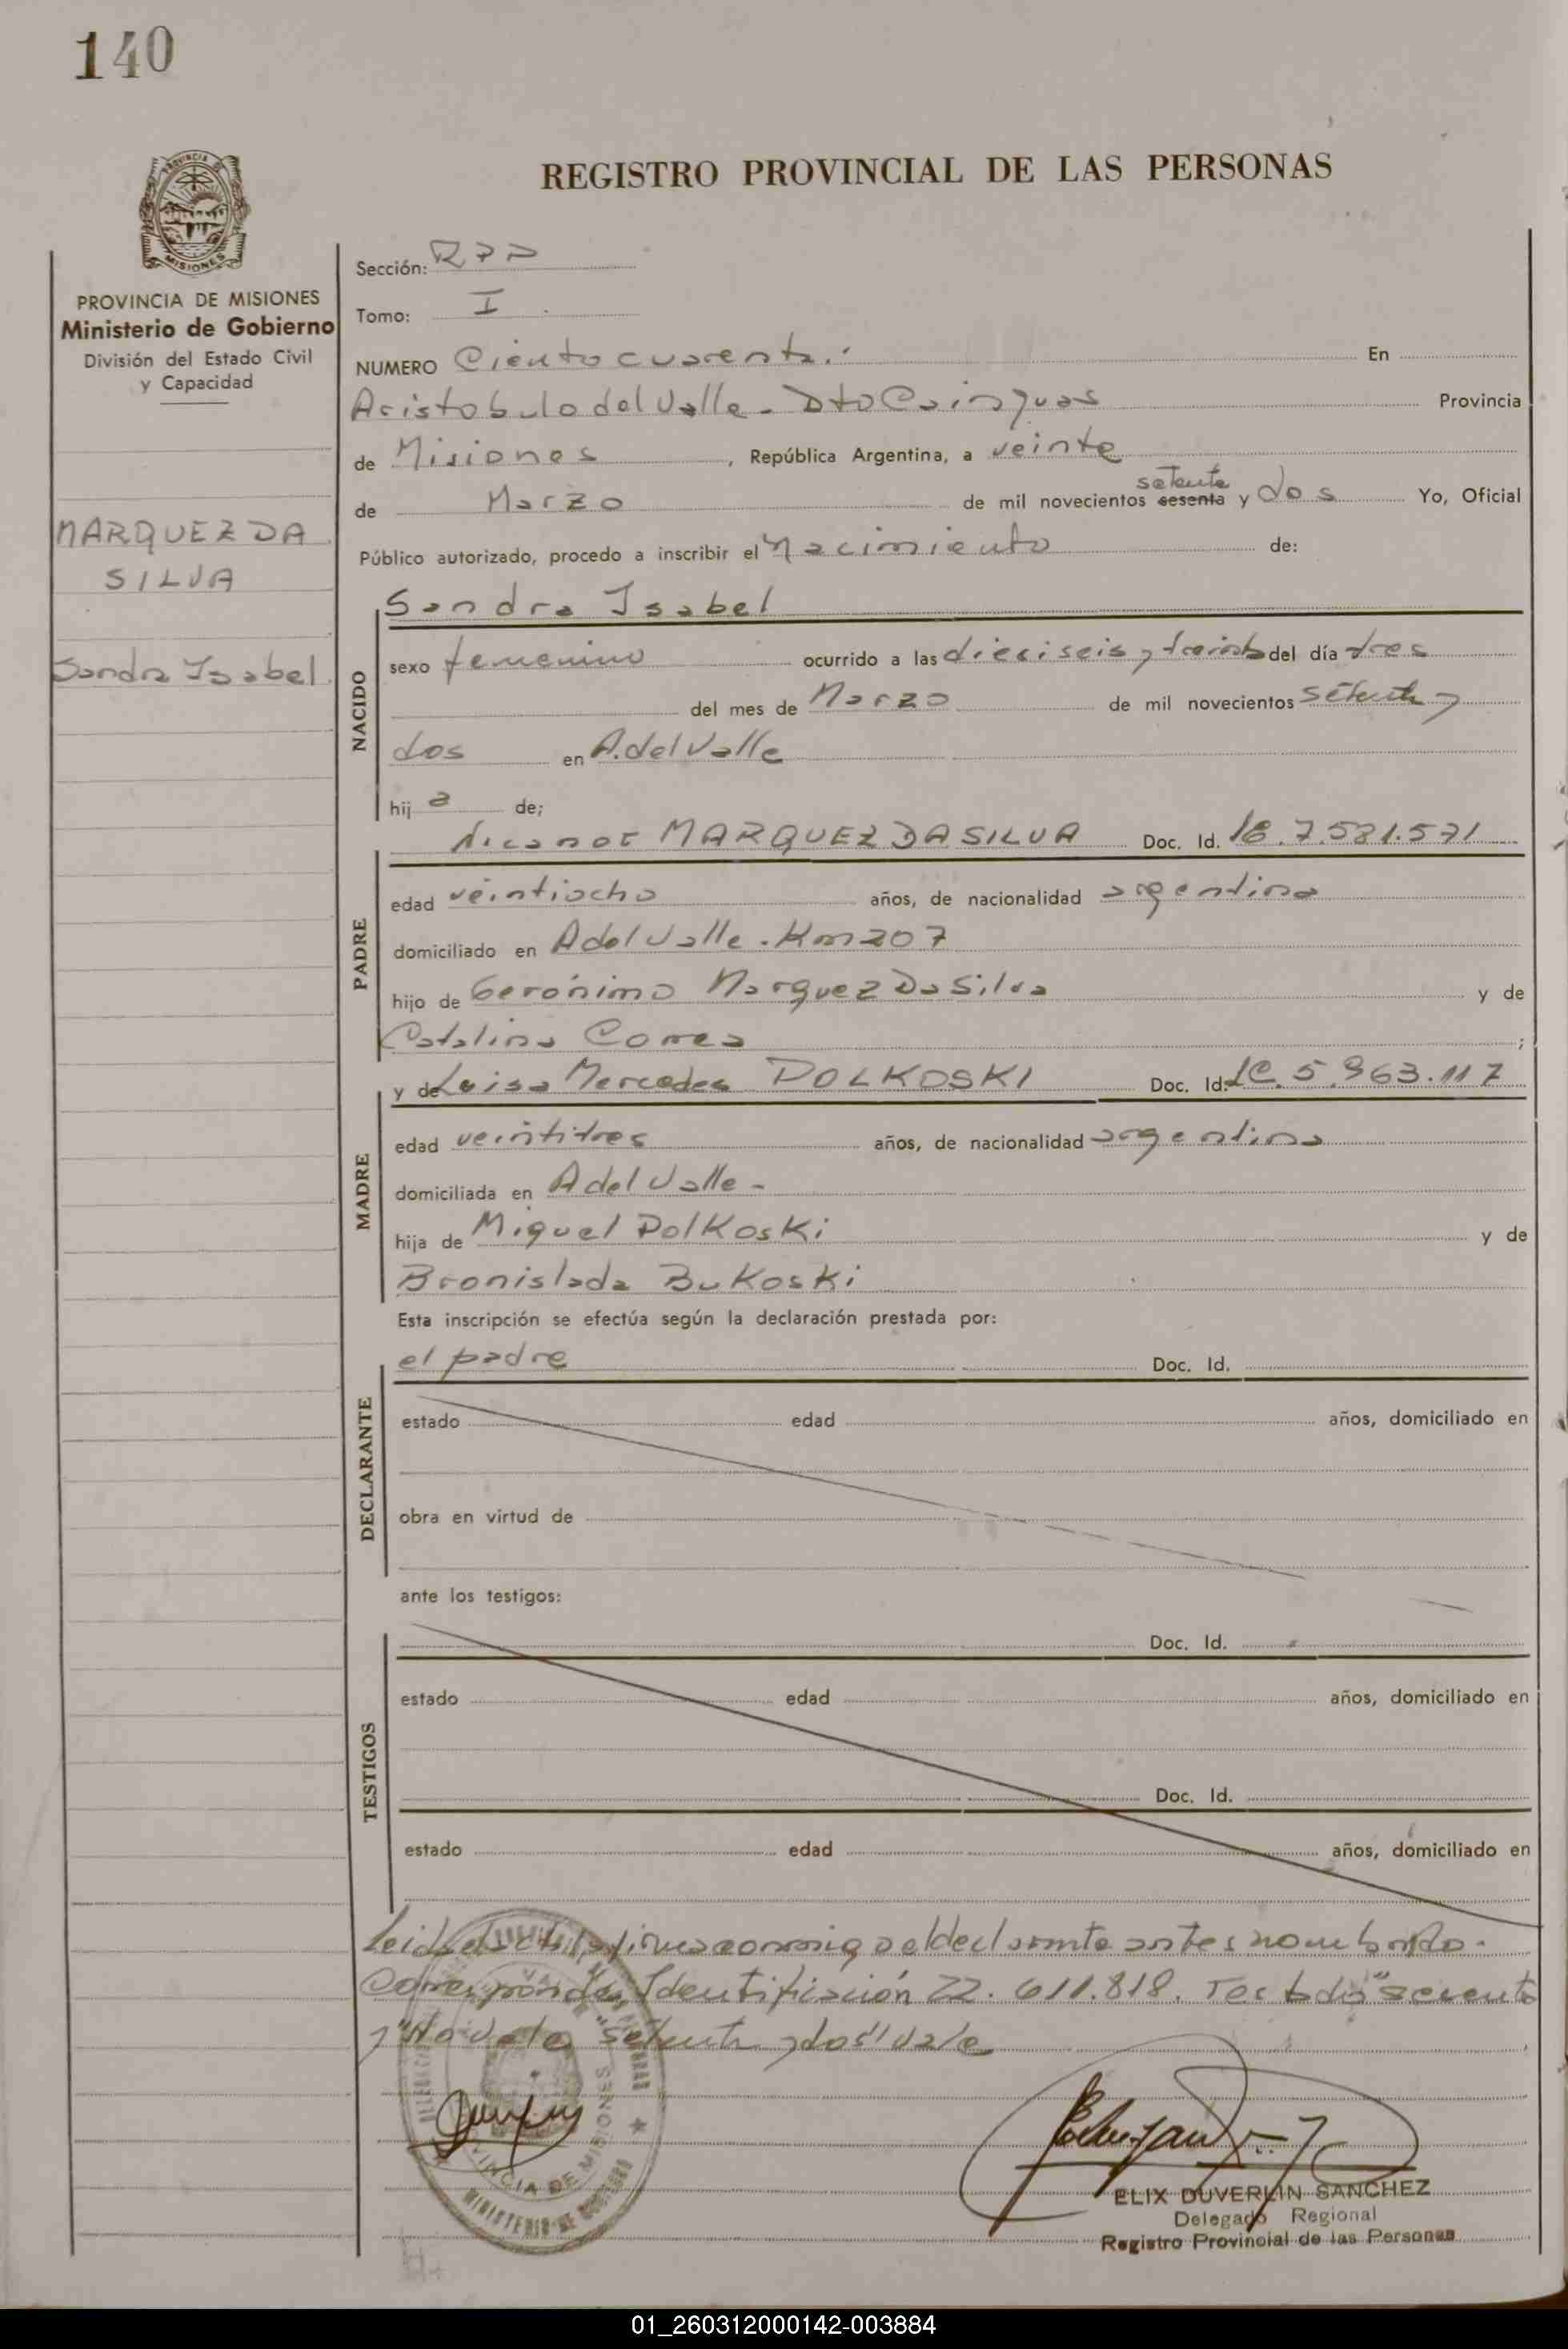 140
REGISTRO PROVINCIAL DE LAS PERSONAS
PROVINCIA DE MISIONES
Ministerio de Gobierno
División del Estado Civil
y Capacidad
MARQUEZ DA
SILVA
Sandra Isabel
Sección:
Tomo: I
NUMERO Ciento cuarenta. En
Aristobulo del Valle - Dto Cainguas Provincia
de Misiones, República Argentina, a veinte
setenta
de Marzo de mil novecientos sesenta y dos Yo, Oficial
Público autorizado, procedo a inscribir el Nacimiento de:
Sandra Isabel
NACIDO
sexo femenino ocurrido a las dieciseis y treinta del día tres
del mes de Marzo de mil novecientos setenta y
dos en A. del Valle
hij a de;
Nicanor MARQUEZ DA SILVA Doc. Id. 7.581.571
PADRE
edad veintiocho años, de nacionalidad argentina
domiciliado en A del Valle - Km 207
hijo de Gerónimo Marquez Da Silva y de
Catalina Correa ;
y de Luisa Mercedes DOLKOSKI Doc. Id. LC. 5.963.117
MADRE
edad veintitres años, de nacionalidad argentina
domiciliada en A del Valle -
hija de Miguel Dolkoski y de
Bronislada Bukoski
Esta inscripción se efectúa según la declaración prestada por:
el padre Doc. Id.
DECLARANTE
estado edad años, domiciliado en
obra en virtud de
ante los testigos:
Doc. Id.
TESTIGOS
estado edad años, domiciliado en
Doc. Id.
estado edad años, domiciliado en
Leida el acta, la firma conmigo el declarante antes nombrado.
Corresponde Identificación 22.611.818. Testado "sesenta
y" setenta y dos" vale
PROVINCIA DE MISIONES
MINISTERIO DE GOBIERNO
ELIX DUVERLIN SANCHEZ
Delegado Regional
Registro Provincial de las Personas
01_260312000142-003884